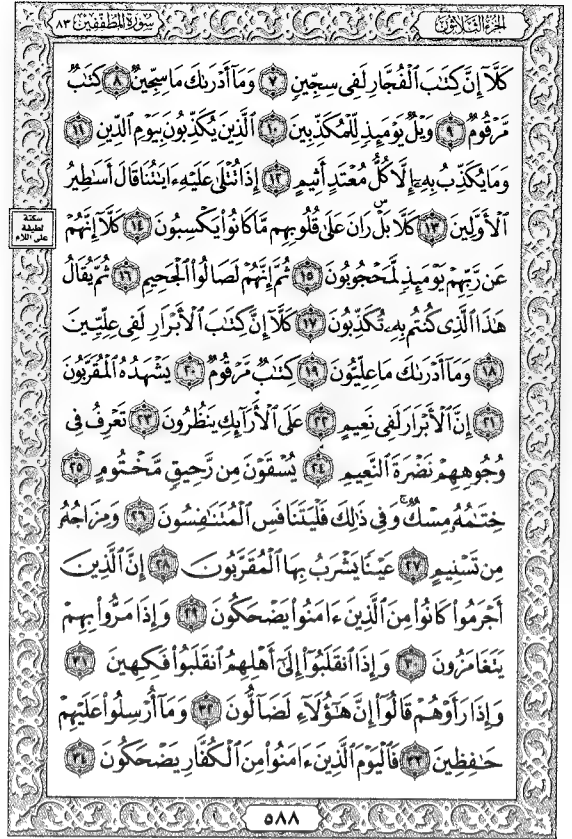 سُورَةُ المُطَفِّفِينَ ٨٣
الجُزْءُ الثَّلَاثُونَ
كَلَّآ إِنَّ كِتَٰبَ ٱلْفُجَّارِ لَفِى سِجِّينٍ ٧ وَمَآ أَدْرَىٰكَ مَا سِجِّينٌ ٨ كِتَٰبٌ
مَّرْقُومٌ ٩ وَيْلٌ يَوْمَئِذٍ لِّلْمُكَذِّبِينَ ١٠ ٱلَّذِينَ يُكَذِّبُونَ بِيَوْمِ ٱلدِّينِ ١١
وَمَا يُكَذِّبُ بِهِۦٓ إِلَّا كُلُّ مُعْتَدٍ أَثِيمٍ ١٢ إِذَا تُتْلَىٰ عَلَيْهِ ءَايَٰتُنَا قَالَ أَسَٰطِيرُ
ٱلْأَوَّلِينَ ١٣ كَلَّا بَلْۜ رَانَ عَلَىٰ قُلُوبِهِم مَّا كَانُوا۟ يَكْسِبُونَ ١٤ كَلَّآ إِنَّهُمْ
سكتة
لطيفة
على اللام
عَن رَّبِّهِمْ يَوْمَئِذٍ لَّمَحْجُوبُونَ ١٥ ثُمَّ إِنَّهُمْ لَصَالُوا۟ ٱلْجَحِيمِ ١٦ ثُمَّ يُقَالُ
هَٰذَا ٱلَّذِى كُنتُم بِهِۦ تُكَذِّبُونَ ١٧ كَلَّآ إِنَّ كِتَٰبَ ٱلْأَبْرَارِ لَفِى عِلِّيِّينَ
١٨ وَمَآ أَدْرَىٰكَ مَا عِلِّيُّونَ ١٩ كِتَٰبٌ مَّرْقُومٌ ٢٠ يَشْهَدُهُ ٱلْمُقَرَّبُونَ
٢١ إِنَّ ٱلْأَبْرَارَ لَفِى نَعِيمٍ ٢٢ عَلَى ٱلْأَرَآئِكِ يَنظُرُونَ ٢٣ تَعْرِفُ فِى
وُجُوهِهِمْ نَضْرَةَ ٱلنَّعِيمِ ٢٤ يُسْقَوْنَ مِن رَّحِيقٍ مَّخْتُومٍ ٢٥
خِتَٰمُهُۥ مِسْكٌ ۚ وَفِى ذَٰلِكَ فَلْيَتَنَافَسِ ٱلْمُتَنَٰفِسُونَ ٢٦ وَمِزَاجُهُۥ
مِن تَسْنِيمٍ ٢٧ عَيْنًا يَشْرَبُ بِهَا ٱلْمُقَرَّبُونَ ٢٨ إِنَّ ٱلَّذِينَ
أَجْرَمُوا۟ كَانُوا۟ مِنَ ٱلَّذِينَ ءَامَنُوا۟ يَضْحَكُونَ ٢٩ وَإِذَا مَرُّوا۟ بِهِمْ
يَتَغَامَزُونَ ٣٠ وَإِذَا ٱنقَلَبُوٓا۟ إِلَىٰٓ أَهْلِهِمُ ٱنقَلَبُوا۟ فَكِهِينَ ٣١
وَإِذَا رَأَوْهُمْ قَالُوٓا۟ إِنَّ هَٰٓؤُلَآءِ لَضَآلُّونَ ٣٢ وَمَآ أُرْسِلُوا۟ عَلَيْهِمْ
حَٰفِظِينَ ٣٣ فَٱلْيَوْمَ ٱلَّذِينَ ءَامَنُوا۟ مِنَ ٱلْكُفَّارِ يَضْحَكُونَ ٣٤
٥٨٨